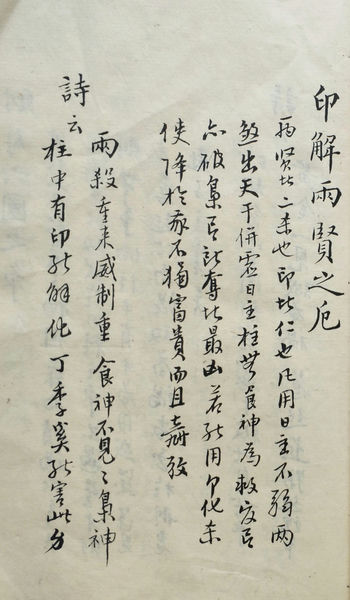 印解兩賢之厄
両贤者二杀也印者仁也凡用日主不强两
煞出天干併露日主柱無食神為救交
亦破枭 夺者最凶若能用印化杀
使降於我不獨富貴而且壽攷
詩云
兩殺重來威制重食神不見々梟神
柱中有印能解化丁季奚能害此